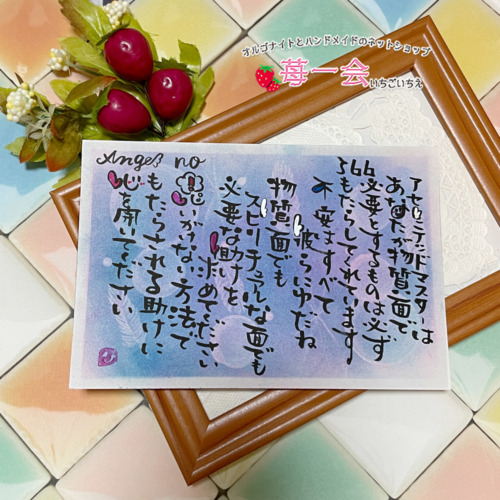 オルゴナイトとハンドメイドのネットショップ
苺一会
いちごいちえ
Angel no
366
アセンデッドマスターは
あなたが物質面で
必要とするものは必ず
もたらしてくれています
不安はすべて
彼らにゆだね
物質面でも
スピリチュアルな面でも
必要な助けを
求めてください
思いがけない方法で
もたらされる助けに
心を開いてください